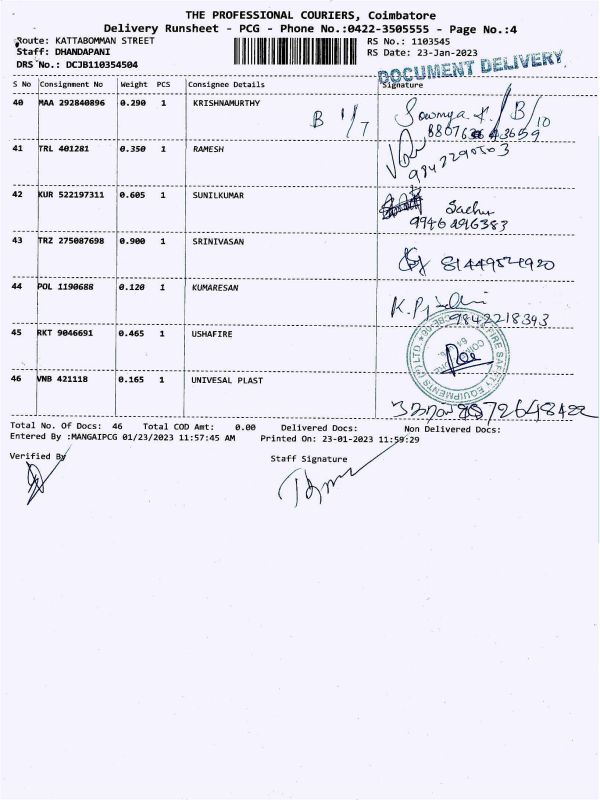 THE PROFESSIONAL COURIERS, Coimbatore
Delivery Runsheet - PCG - Phone No.:0422-3505555 - Page No.:4
Route: KATTABOMMAN STREET RS No.: 1103545
Staff: DHANDAPANI RS Date: 23-Jan-2023
DRS No.: DCJB110354504
DOCUMENT DELIVERY
S No Consignment No Weight PCS Consignee Details Signature
40 MAA 292840896 0.290 1 KRISHNAMURTHY B 1/7 Sowmya K. B/10
41 TRL 401281 0.350 1 RAMESH
42 KUR 522197311 0.605 1 SUNILKUMAR
43 TRZ 275087698 0.900 1 SRINIVASAN
44 POL 1190688 0.120 1 KUMARESAN
9842218393
45 RKT 9046691 0.465 1 USHAFIRE
FIRE SAFETY EQUIPMENTS (P) LTD.
46 VNB 421118 0.165 1 UNIVESAL PLAST
Total No. Of Docs: 46 Total COD Amt: 0.00 Delivered Docs: Non Delivered Docs:
Entered By :MANGAIPCG 01/23/2023 11:57:45 AM Printed On: 23-01-2023 11:59:29
Verified By Staff Signature